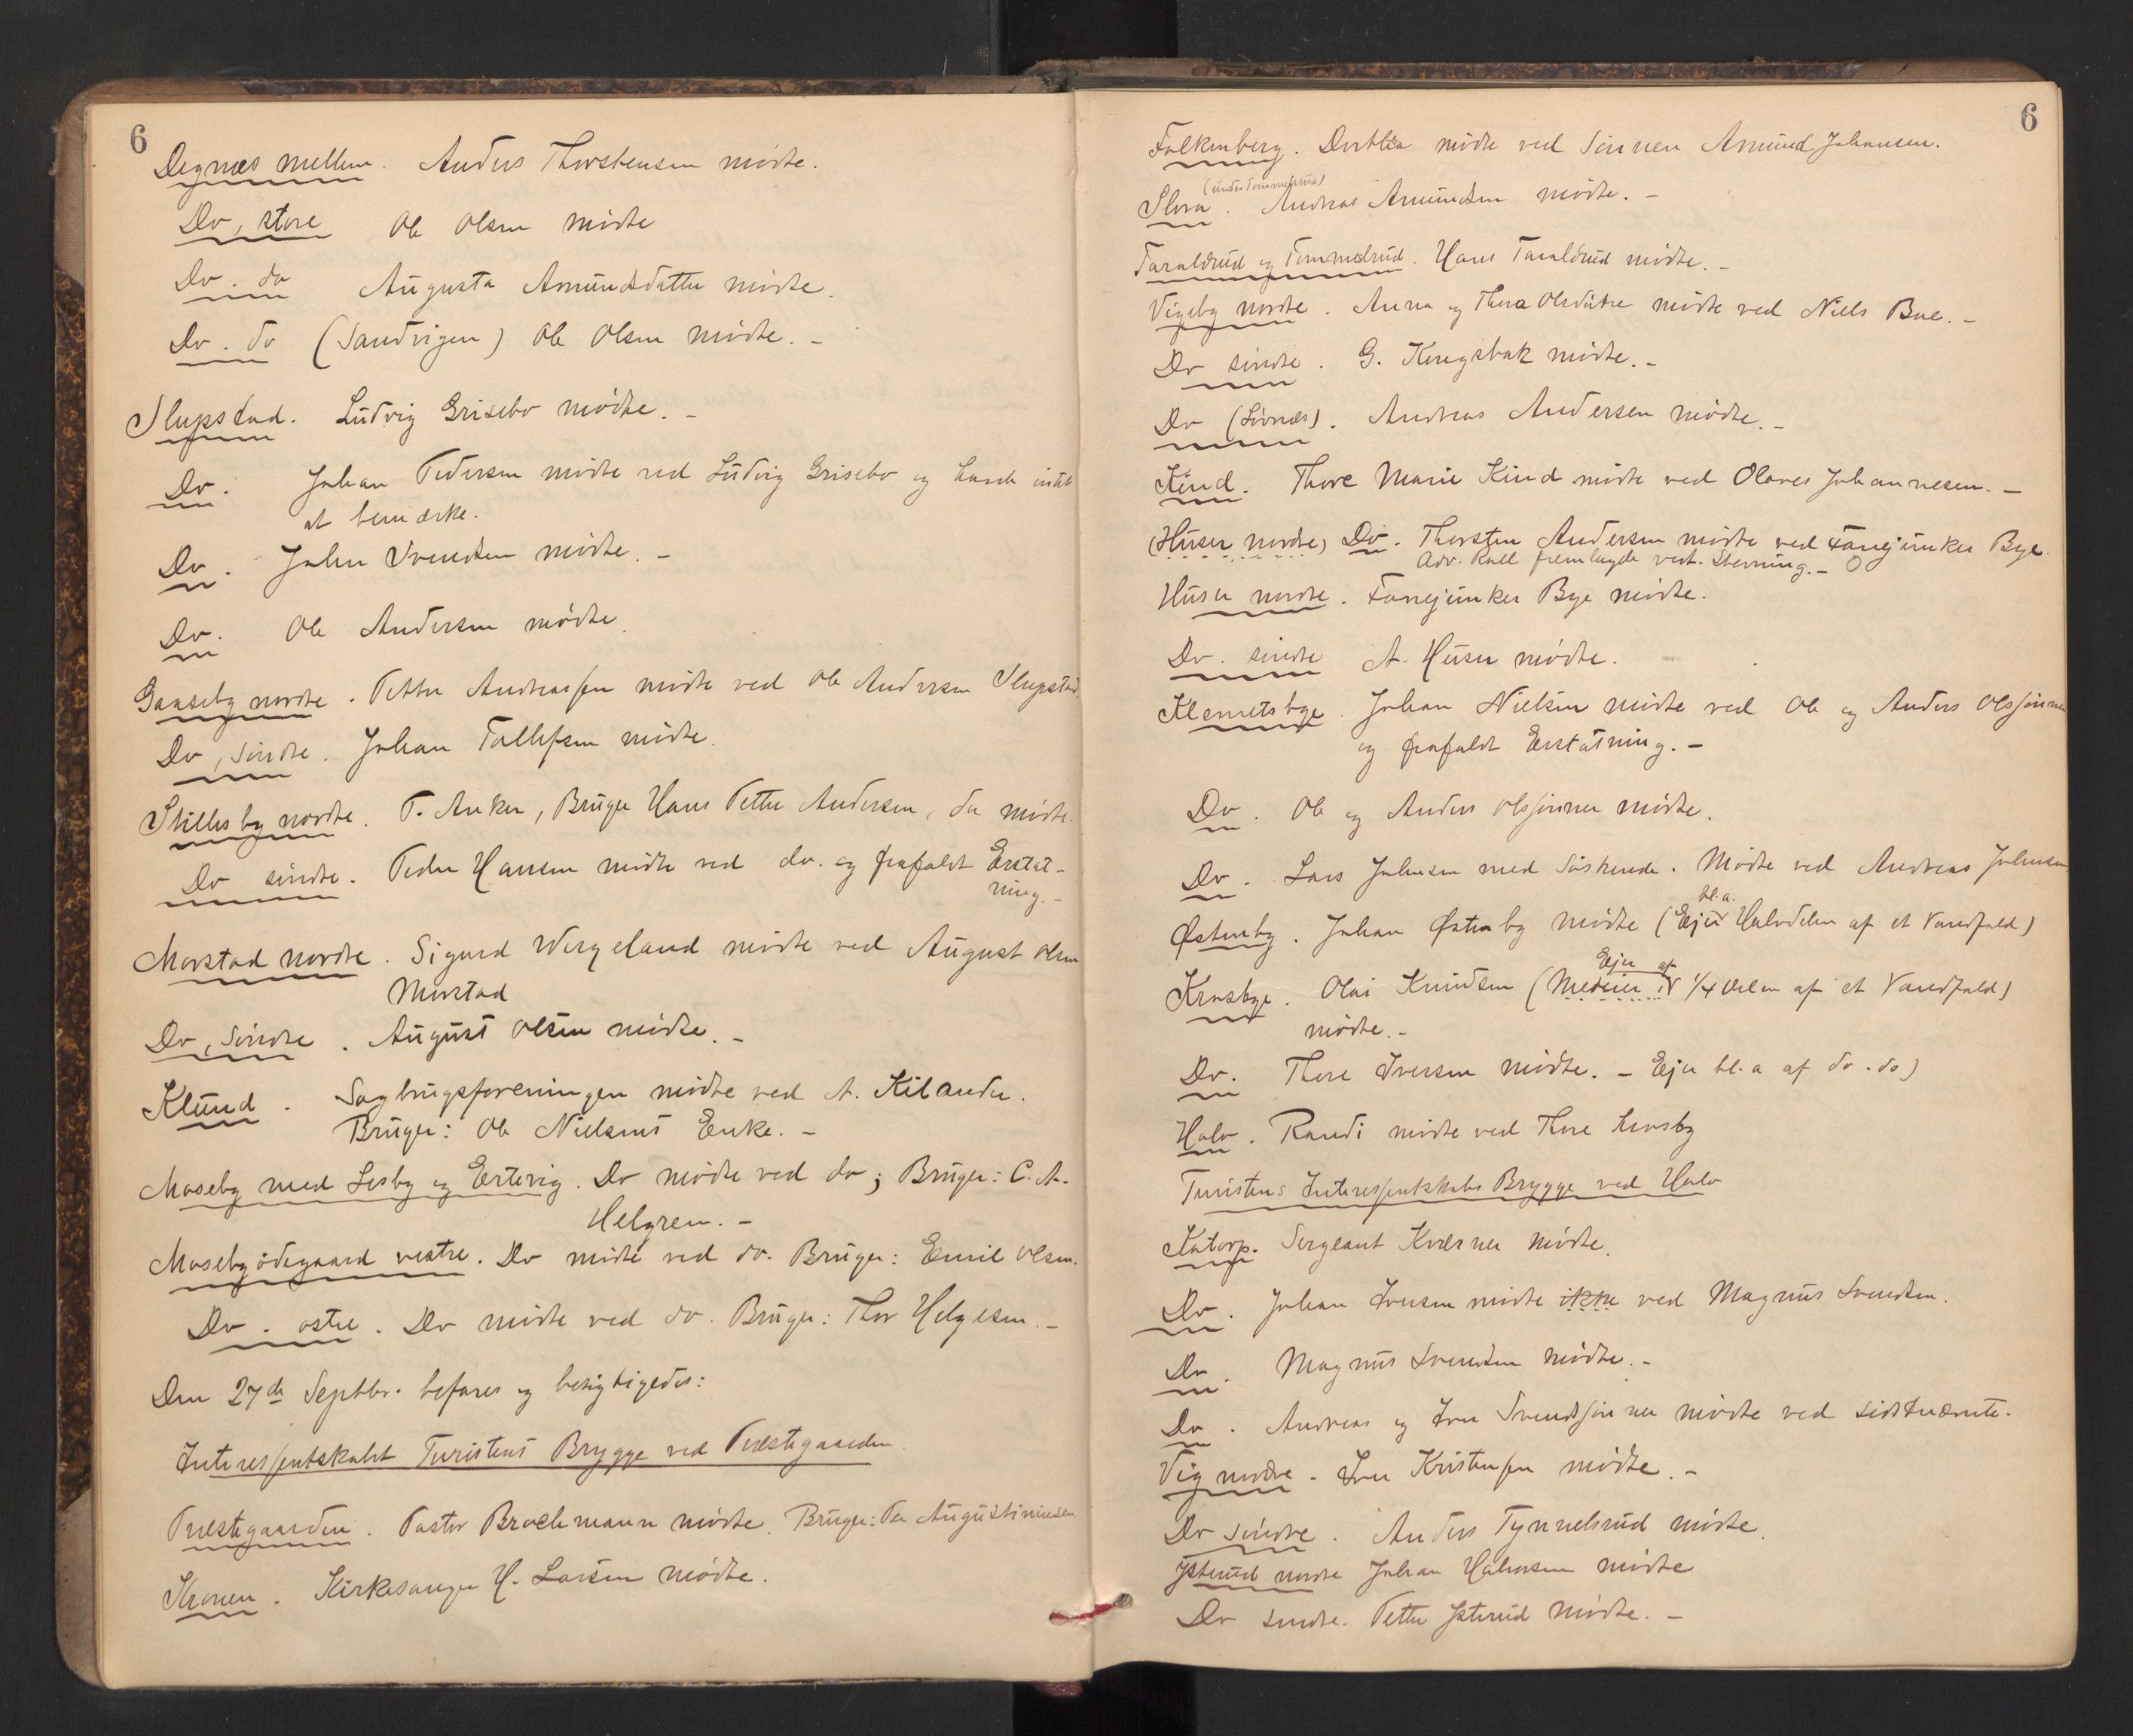 6
Degnæs mellem. Anders Thorstensen mødte.
Do, store Ole Olsen mødte
Do. do Augusta Amundsdatter mødte.
Do. do (Sandvigen) Ole Olsen mødte. –
Slupstad. Ludvig Grisebo mødte. –
Do. Johan Pedersen mødte ved Ludvig Grisebo og havde intet
at bemærke.
Do. Johan Svendsen mødte. –
Do. Ole Andersen mødte.
Gaaseby nordre. Petter Andreassen mødte ved Ole Andersen Slupstad.
Do, søndre. Johan Tollefsen mødte.
Skillesby nordre. P. Anker, Bruger Hans Petter Andersen, der mødte.
Do søndre. Peder Hansen mødte ved do. og frafaldt Erstat-
ning. –
Morstad nordre. Sigurd Wergeland mødte ved August Olsen
Morstad
Do, søndre. August Olsen mødte. –
Klund. Sagbrugsforeningen mødte ved A. Kilander.
Bruger: Ole Nielsens Enke. –
Moseby med Lisby og Ertevig. Do mødte ved do; Bruger: C. A.
Helgren. –
Mosebyødegaard vestre. Do mødte ved do. Bruger: Emil Olsen.
Do. østre. Do mødte ved do. Bruger: Thor Helgesen. –
Den 27de Septbr. befares og besigtigedes:
Interessentskabet Turistens Brygge ved Præstegaarden.
Præstegaarden. Pastor Brochmann mødte. Bruger: Per Augustinusen.
Kronen. Kirkesanger H. Larsen mødte.
6
Falkenberg. Dorthea mødte ved Sønnen Amund Johansen.
(under Tommelrud)
Slora. Andreas Amundsen mødte. –
Taraldrud og Tommelrud. Hans Taraldrud mødte. –
Vigeby nordre. Anna og Thora Olsdøtre mødte ved Niels Boe. –
Do søndre. G. Kongsbak mødte. –
Do (Løvnæs). Andreas Andersen mødte. –
Kind. Thore Marie Kind mødte ved Olaves Johannesen. –
(Huser nordre) Do. Thorsten Andersen mødte ved Fanejunker Bye.
Adv. Roll fremlagde vedt. Stevning. –
Huser nordre. Fanejunker Bye mødte.
Do. søndre A. Huser mødte.
Klemetsbye. Johan Nielsen mødte ved Ole og Anders Olssønner
og frafaldt Erstatning. –
Do. Ole og Anders Olssønner mødte.
Do. Lars Johnsen med Søskende. Mødte ved Andreas Johnsen
bl. a.
Østenby. Johan Østenby mødte (Ejer Halvdelen af et Vandfald)
Ejer af
Krosbye. Olai Knudsen (Medeier i 1/4 Delen af et Vandfald)
mødte. –
Do. Thore Iversen mødte. – Ejer bl. a af do. do)
Holo. Randi mødte ved Thore Krosby
Turistens Interessentskabs Brygge ved Holo
Katorp. Sergeant Kværner mødte.
Do. Johan Iversen mødte ikke ved Magnus Svendsen.
Do. Magnus Svendsen mødte. –
Do. Andreas og Iver Svendssønner mødte ved sidstnævnte.
Vig nordre. Iver Kristensen mødte. –
Do søndre. Anders Tynnelsrud mødte.
Jsterud nordre Johan Halvorsen mødte
Do søndre. Petter Jsterud mødte. –